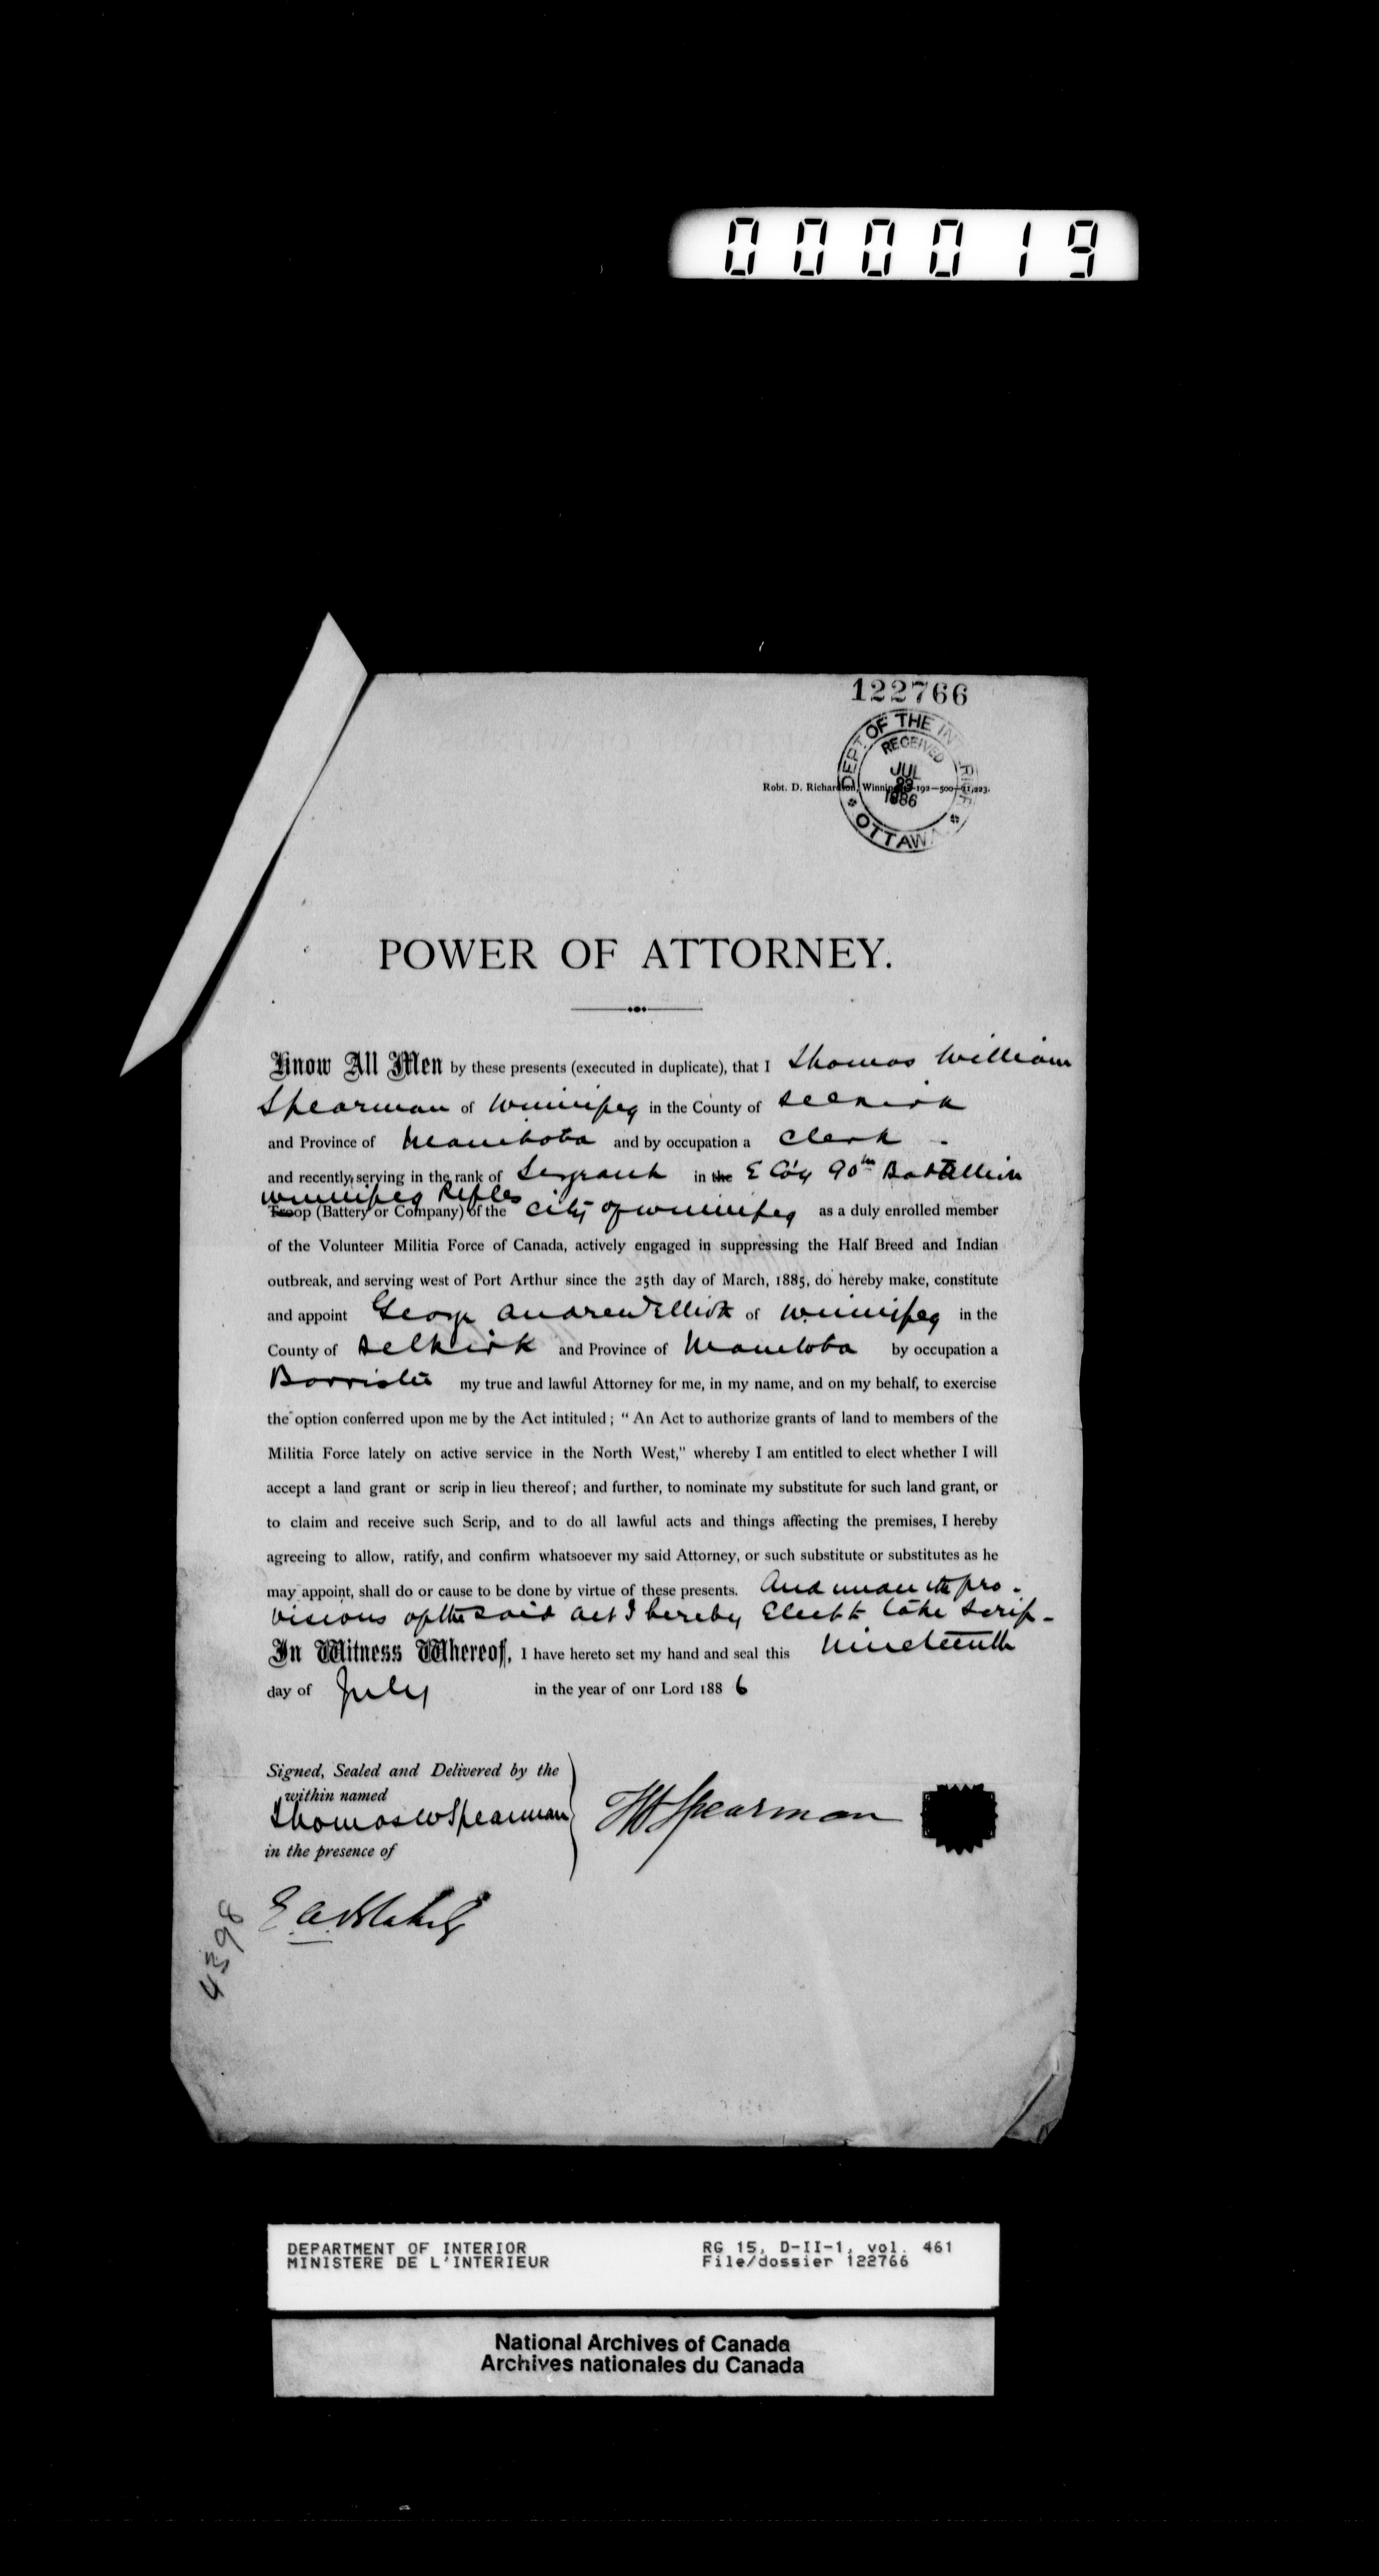 000019
122766
DEPT. OF THE INTERIOR
RECEIVED
JUL
1886
OTTAWA
Robt. D. Richardson, Winnipeg—192—500—11,223.
POWER OF ATTORNEY.
Know All Men by these presents (executed in duplicate), that I Thomas William
Spearman of Winnipeg in the County of Selkirk
and Province of Manitoba and by occupation a Clerk -
and recently serving in the rank of Sergeant in the E Coy 90th Battallion
Winnipeg Rifles
Troop (Battery or Company) of the City of Winnipeg as a duly enrolled member
of the Volunteer Militia Force of Canada, actively engaged in suppressing the Half Breed and Indian
outbreak, and serving west of Port Arthur since the 25th day of March, 1885, do hereby make, constitute
and appoint George Andrew Elliott of Winnipeg in the
County of Selkirk and Province of Manitoba by occupation a
Barrister my true and lawful Attorney for me, in my name, and on my behalf, to exercise
the option conferred upon me by the Act intituled; "An Act to authorize grants of land to members of the
Militia Force lately on active service in the North West," whereby I am entitled to elect whether I will
accept a land grant or scrip in lieu thereof; and further, to nominate my substitute for such land grant, or
to claim and receive such Scrip, and to do all lawful acts and things affecting the premises, I hereby
agreeing to allow, ratify, and confirm whatsoever my said Attorney, or such substitute or substitutes as he
may appoint, shall do or cause to be done by virtue of these presents. And under the pro-
visions of the said act I hereby Elect to take scrip -
In Witness Whereof, I have hereto set my hand and seal this Nineteenth
day of July in the year of onr Lord 188 6
Signed, Sealed and Delivered by the
within named
Thomas W Spearman
in the presence of
TW Spearman
4398
DEPARTMENT OF INTERIOR
MINISTERE DE L'INTERIEUR
RG 15, D-II-1, vol. 461
File/dossier 122766
National Archives of Canada
Archives nationales du Canada